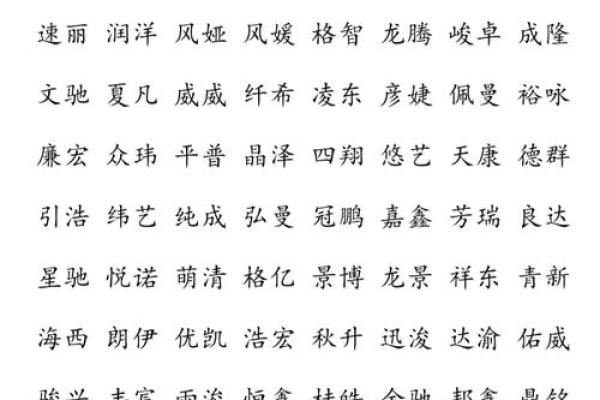 速丽 润洋 风娅 风媛 格智 龙腾 峻卓 成隆
文驰 夏凡 威威 纤希 凌东 彦婕 佩曼 裕咏
廉宏 众玮 平普 晶泽 四翔 悠艺 天康 德群
引浩 纬艺 纯成 弘曼 冠鹏 嘉鑫 芳瑞 良达
星驰 悦诺 萌清 格亿 景博 龙景 祥东 青新
海西 朗伊 优凯 浩宏 秋升 迅浚 达渝 佑威
骏兴 丰宾 雨浚 恒鑫 桂皓 金驰 邦鑫 鼎铭